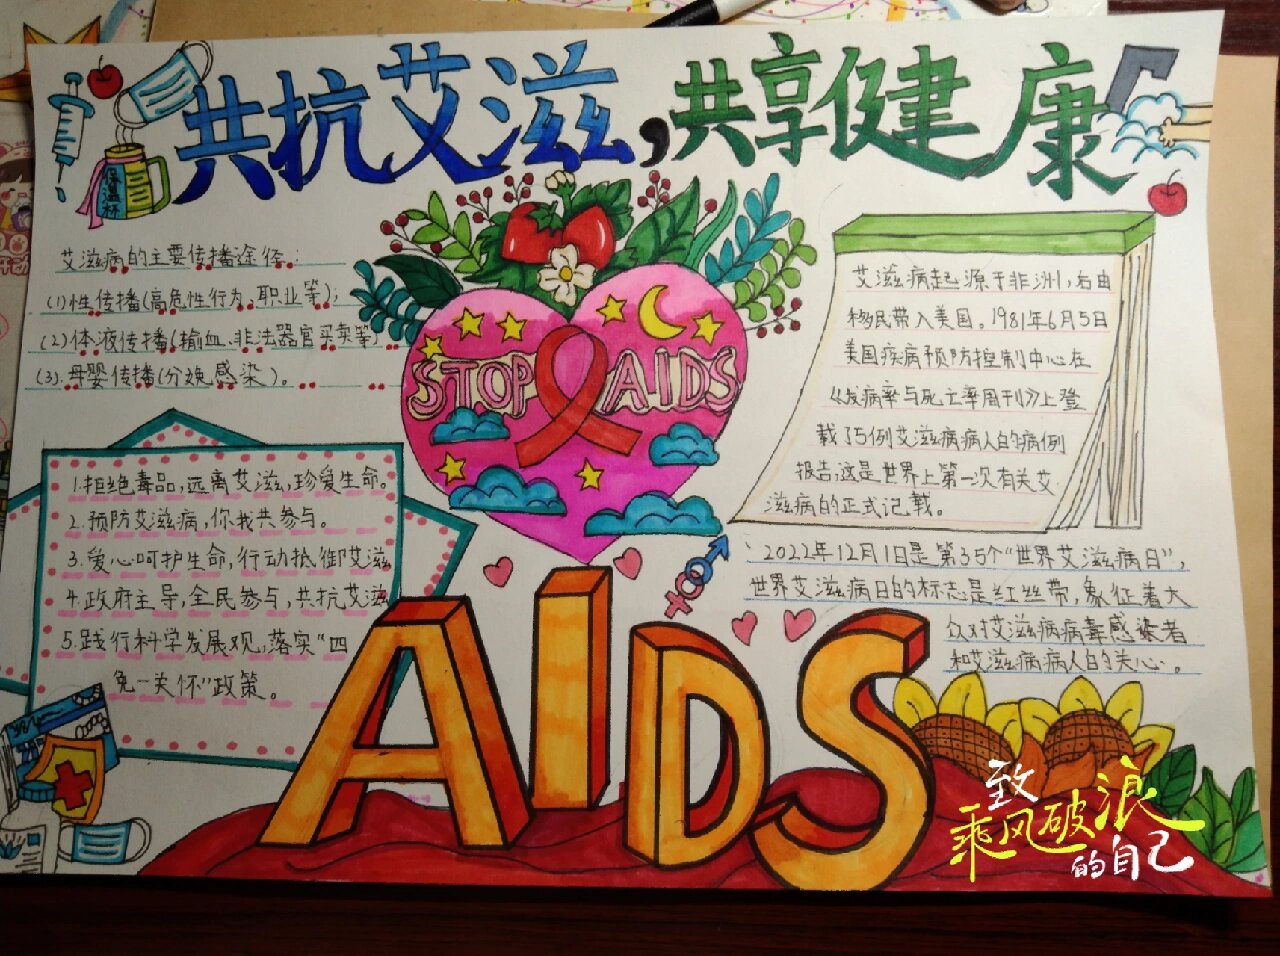 共抗艾滋,共享健康
保温杯
艾滋病的主要传播途径:
(1)性传播(高危性行为、职业等);
(2)体液传播(输血、非法器官买卖等)
(3).母婴传播(分娩感染)。
STOP AIDS
艾滋病起源于非洲,右由
移民带入美国。1981年6月5日
美国疾病预防控制中心在
《发病率与死亡率周刊》上登
载了5例艾滋病病人的病例
报告,这是世界上第一次有关艾
滋病的正式记载。
1.拒绝毒品,远离艾滋,珍爱生命。
2.预防艾滋病,你我共参与。
3.爱心呵护生命,行动抵御艾滋
4.政府主导,全民参与,共抗艾滋
5.践行科学发展观,落实“四
免一关怀”政策。
2022年12月1日是第35个“世界艾滋病日”,
世界艾滋病日的标志是红丝带,象征着大
众对艾滋病病毒感染者
和艾滋病病人的关心。
AIDS
致
乘风破浪
的自己